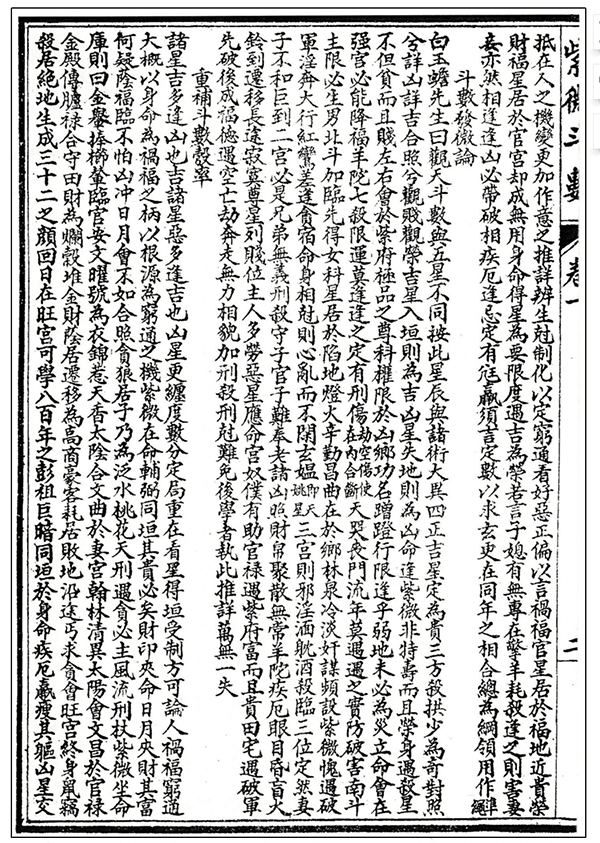 紫微斗數 卷一 二
抵在人之機變更加作意之推詳辨生尅制化以定窮通看好惡正偏以言禍福官星居於福地近貴榮
財福星居於官宮却成無用身命得星為要限度遇吉為榮若言子媳有無專在擎羊耗殺逢之則害妻
妾亦然相逢逢凶必帶破相疾厄逢忌定有尩羸須言定數以求玄更在同年之相合總為綱領用作準繩
斗數發微論
白玉蟾先生曰觀天斗數與五星不同按此星辰與諸術大異四正吉星定為貴三方殺拱少為奇對照
兮詳凶詳吉合照兮觀賤觀榮吉星入垣則為吉凶星失地則為凶命逢紫微非特壽而且榮身遇殺星
不但貧而且賤左右會於紫府極品之尊科權限於凶鄉功名蹭蹬行限逢乎弱地未必為災立命會在
强宮必能降福羊陀七殺限運莫逢逢之定有刑傷劫空傷使在內合斷天哭喪門流年莫遇遇之實防破害南斗
主限必生男北斗加臨先得女科星居於陷地燈火辛勤昌曲在於鄉林泉冷淡奸謀頻設紫微愧遇破
軍淫奔大行紅鸞差逢貪宿命身相尅則心亂而不閑玄媼即天姚星三宮則邪淫而躭酒殺臨三位定然妻
子不和巨到二宮必是兄弟無義刑殺守子宮子難奉老諸凶照財帛聚散無常羊陀疾厄眼目昏盲火
鈴到遷移長途寂寞尊星列賤位主人多勞惡星應命宮奴僕有助官祿遇紫府富而且貴田宅遇破軍
先破後成福德遇空亡劫奔走無力相貌加刑殺刑尅難免後學者執此推詳萬無一失
重補斗數彀率
諸星吉多逢凶也吉諸星惡多逢吉也凶星更纏度數分定局重在看星得垣受制方可論人禍福窮通
大概以身命為禍福之柄以根源為窮通之機紫微在命輔弼同垣其貴必矣財印夾命日月夾財其富
何疑蔭福臨不怕凶冲日月會不如合照貪狼居子乃為泛水桃花天刑遇貪必主風流刑杖紫微坐命
庫則曰金轝捧櫛輦臨官安文曜號為衣錦惹天香太陰合文曲於妻宮翰林清異太陽會文昌於官祿
金殿傳臚祿合守田財為爛穀堆金財蔭居遷移為高商豪客耗居敗地沿途丐求貪會旺宮終身鼠竊
殺居絕地生成三十二之顏回日在旺宮可學八百年之彭祖巨暗同垣於身命疾厄羸瘦其軀凶星交